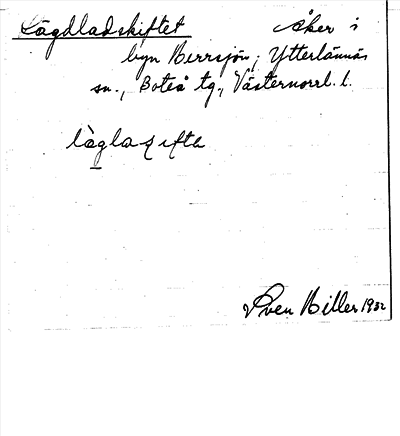 Lägdladskiftet åker i
byn Herrsjön, Ytterlännäs
sn., Boteå tg., Västernorrl. l.
làglaʂifta
Sven Hiller 1932